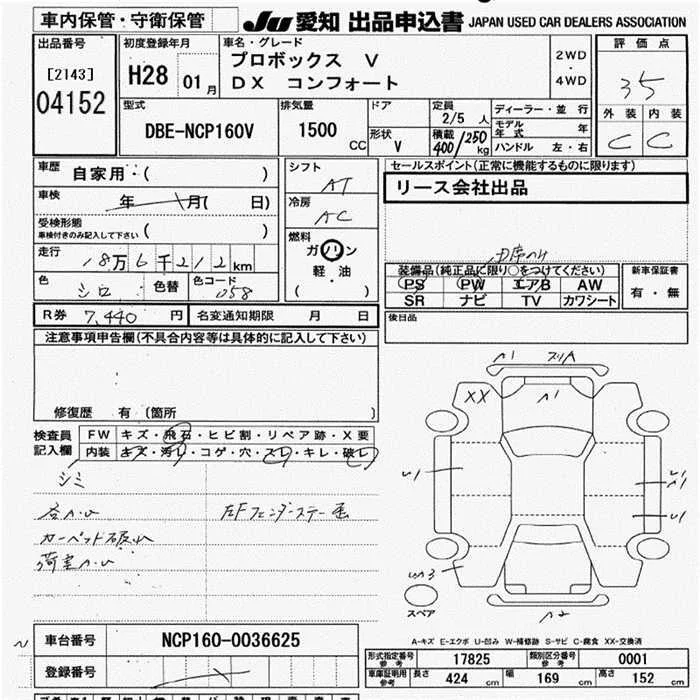 車内保管・守衛保管
JU 愛知 出品申込書 JAPAN USED CAR DEALERS ASSOCIATION
出品番号
[2143]
04152
初度登録年月
H28 01 月
車名・グレード
プロボックス V
DX コンフォート
2WD
・
4WD
評価点
35
外装 内装
C C
型式
DBE-NCP160V
排気量
1500
CC
ドア
形状
V
定員
2/5 人
積載
400/250
kg
ディーラー・並行
モデル年式 年
ハンドル 左・右
車歴
自家用・( )
車検
年 月( 日)
受検形態
車検付きのみ記入して下さい ( )
走行
18万6千212km
色
シロ
色替
色コード
058
シフト
AT
冷房
AC
燃料
ガソリン
軽・油
( )
セールスポイント(正常に機能するものに限ります)
リース会社出品
装備品(純正品に限り○をつけてください)
PS PW エアB AW
SR ナビ TV カワシート
新車保証書
有・無
R券 7,440 円
名変通知期限 月 日
後日品
注意事項申告欄(不具合内容等は具体的に記入して下さい)
修復歴 有 〔箇所 〕
検査員
記入欄
FW キズ・飛石・ヒビ割・リペア跡・X要
内装 キズ・汚レ・コゲ・穴・スレ・キレ・破レ
シミ
カーペット破れ
XX
スペア
A-キズ E-エクボ U-凹み W-補修跡 S-サビ C-腐食 XX-交換済
車台番号
NCP160-0036625
登録番号
形式指定番号
参考
17825
類別区分番号
参考
0001
車庫証明用
参考
長さ 424 cm 幅 169 cm 高さ 152 cm